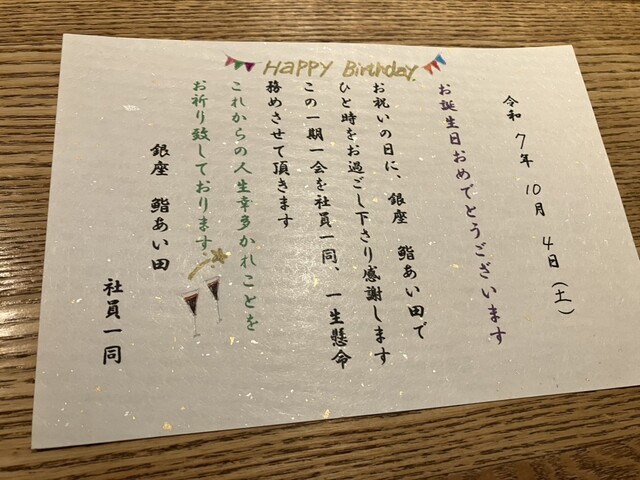 HAPPY Birthday
令和 7年 10月 4日(土)
お誕生日おめでとうございます
お祝いの日に、銀座 鮨あい田で
ひと時をお過ごし下さり感謝します
この一期一会を社員一同、一生懸命
務めさせて頂きます
これからの人生幸多かれことを
お祈り致しております。
銀座 鮨あい田
社員一同